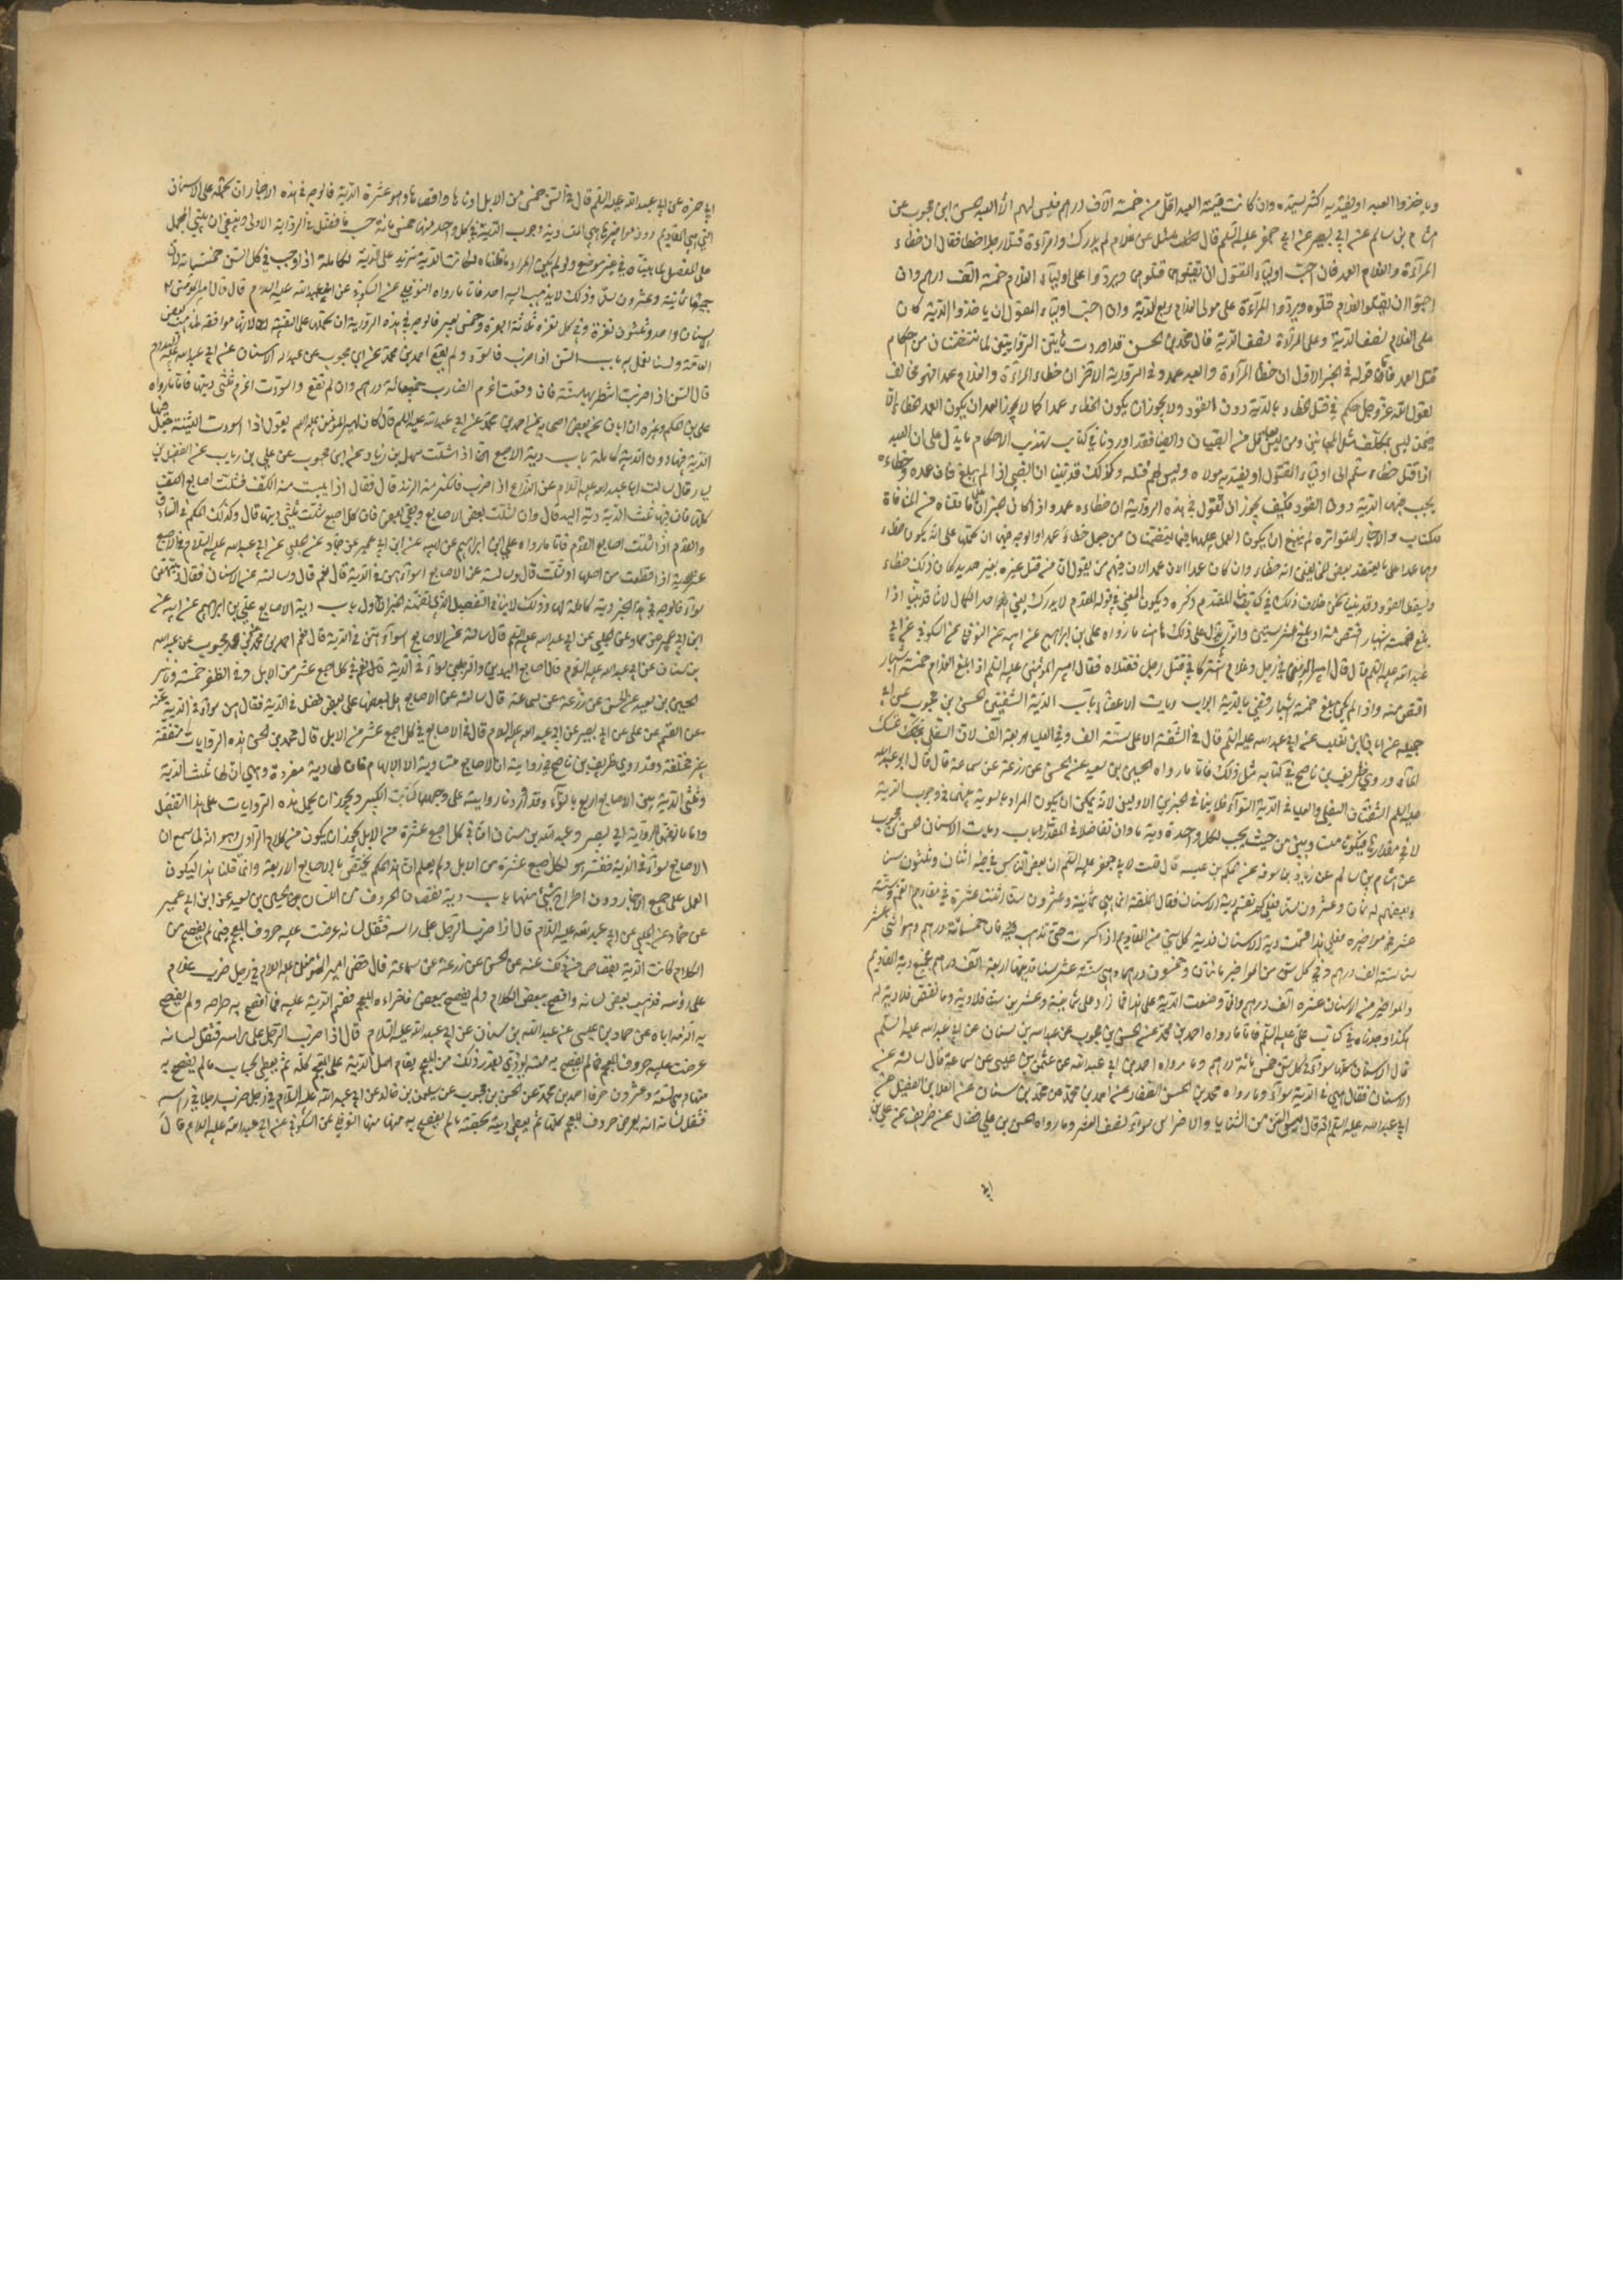 وياخذوا العبد او يفتديه اكثر قيمته وان كانت قيمته العبد اقل من خمسة آلاف درهم فليس لهم الا العبد الحسن ابن محبوب عن
هشام بن سالم عن ابي بصير عن ابي جعفر عليه السلم قال سئل عن غلام لم يدرك وامرأة قتلا رجلا خطا فقال ان خطاء
المرأة والغلام العمد فان احب اولياء المقتول ان يقتلوهما قتلوهما ويردوا على اولياء الغلام خمسة الف درهم وان
احبوا ان يقتلوا الغلام قتلوه ويردوا المرأة على مولى الغلام ربع الدية وان احب اولياء المقتول ان ياخذوا الدية كان
على الغلام نصف الدية وعلى المرأة نصف الدية قال محمد بن الحسن قد اوردت هاتين الروايتين لما تتضمنان من احكام
قتل العمد فاما قوله في الخبر الاول ان خطا المرأة والعبد عمد وفي الرواية الاخرى ان خطاء المرأة والغلام عمد فهو مخالف
لقول الله عز وجل حكم في قتل الخطاء بالدية دون القود ولا يجوز ان يكون الخطاء عمدا كما لا يجوز العمد ان يكون العمد خطاء الا
فيمن ليس بمكلف مثل المجانين ومن ليس بعاقل من الصبيان وايضا فقد اوردنا في كتاب تهذيب الاحكام ما يدل على ان العبد
اذا قتل خطاء سلم الى اولياء المقتول او يفتديه مولاه وليس لهم قتله وكذلك قد بينا ان الصبي اذا لم يبلغ فان عمده وخطاءه
يجب فيهما الدية دون القود فكيف يجوز ان نقول في هذه الرواية ان خطاءه عمد واذا كان الخبران على ما قلناه من المنافاة
للكتاب والاخبار المتواترة لم ينبغ ان يكون العمل عليهما فيما يتضمنان من جعل خطاء عمدا والوجه فيهما ان نحملها على انه يكون خطاء
وما عمدا على ما يعتقده بعض مخالفينا انه خطاء وان كان عمدا لان عمدا لان فيهم من يقول ان من قتل غيره بغير حديد كان ذلك خطاء
وسقط القود وقد بينا نحن خلاف ذلك في كتابنا المقدم ذكره ويكون المعنى في قوله الغلام لا يدرك يعني به احد الكمال لانا قد بينا اذا
بلغ خمسة اشبار اقتص منه او بلغ عشر سنين والذي يدل على ذلك ما رواه علي بن ابراهيم عن ابيه عن النوفلي عن السكوني عن ابي
عبد الله عليه السلم قال قال امير المؤمنين في رجل وغلام اشتركا في قتل رجل فقتلاه فقال امير المؤمنين عليه السلم اذا بلغ الغلام خمسة اشبار
اقتص منه واذا لم يكن بلغ خمسة اشبار قضي بالدية ابواب ديات الاعضاء باب الدية الشفتين الحسن بن محبوب عن ابي
جميلة عن ابان ابن تغلب عن ابي عبد الله عليه السلم قال في الشفة الاعلى ستة الف وفي العليا اربعة آلف لان السفلى تمسك
الماء وروى ظريف بن ناصح في كتابه مثل ذلك فاما ما رواه الحسين بن سعيد عن الحسن عن زرعة عن سماعة قال قال ابو عبد الله
عليه السلم الشفتان السفلى والعليا في الدية السواء فلا ينافي الخبرين الاولين لانه يمكن ان يكون المراد بالسوية بينهما في وجوب الدية
لا في مقدارها فيكونا متساويين من حيث يجب لكل واحدة دية ما وان تفاضلا في المقدار باب ديات الاسنان الحسن بن محبوب
عن هشام بن سالم عن زياد بن سوقة عن الحكم بن عتيبة قال قلت لابي جعفر عليه السلم ان بعض الناس في فيه اثنان وثلثون سنا
وبعضهم له ثمان وعشرون سنا فعلى كم تقسم دية الاسنان فقال الخلقة انما هي ثمانية وعشرون سنا اثنتا عشرة في مقاديم الفم وستة
عشر في مواخيره فعلى هذا قسمت دية الاسنان فدية كل سن من المقاديم اذا كسرت حتى تذهب فان خمسمائة درهم وهو اثنى عشر
سنا ستة الف درهم وفي كل سن من المواخير مائتان وخمسون درهما وهي ستة عشر سنا فديتها اربعة آلف درهم فجميع دية المقاديم
والمواخير من الاسنان عشرة الف درهم وانما وضعت الدية على هذا فما زاد على ثمانية وعشرين سنا فلا دية وما نقص فلا دية له
هكذا وجدناه في كتاب علي عليه السلم فاما ما رواه احمد بن محمد عن الحسن بن محبوب عن عبد الله بن سنان عن ابي عبد الله عليه السلم
قال الاسنان كلها سواء في كل سن خمس مائة درهم وما رواه احمد بن ابي عبد الله عن عثمان بن عيسى عن سماعة قال سالته عن
الاسنان فقال هي في الدية سواء وما رواه محمد بن الحسن الصفار عن احمد بن محمد عن محمد بن سنان عن العلا بن الفضيل عن
ابي عبد الله عليه السلم انه قال في السن من الثنايا والاضراس سواء نصف العشر وما رواه الحسن بن علي فضال عن ظريف عن علي بن
ابي حمزة عن ابي عبد الله عليه السلم قال في السن خمس من الابل ادناها واقصاها وهو عشرة الدية فالوجه في هذه الاخبار ان نحمله على الاسنان
التي هي المقاديم دون مواخيرها هي المتساوية وجوب الدية في كل واحد منها خمس مائة حسب ما فصل في الرواية الاولى وينبغي ان يبنى المجمل
على المفصل لما بيناه في غير موضع ولو لم يكن المراد ما قلناه لكانت الدية تزيد على الدية الكاملة اذا اوجب في كل السن خمسمائة لان
جميعها ثمانية وعشرون سن وذلك لا يذهب اليه احد فاما ما رواه النوفلي عن السكوني عن ابي عبد الله عليه السلام قال قال امير المؤمنين ع
الاسنان واحد وثلثون ثغرة وفي كل ثغره ثلاثة ابعرة وخمس بعير فالوجه في هذه الرواية ان نحملها على التقية لانها موافقة لمذهب بعض
العامة ولسنا نعمل به باب السن اذا ضرب فاسود ولم يقع احمد بن محمد عن ابن محبوب عن عبد الله سنان عن ابي عبد الله عليه السلام
قال السن اذا ضربت انتظر بها سنة فان وقعت اغرم الضارب خمسمائة درهم وان لم تقع واسودت اغرم ثلثي ديتها فاما ما رواه
علي بن الحكم وغيره ان ابان عن بعض اصحابه عن احمد بن محمد عن ابي عبد الله عليه السلم قال كان امير المؤمنين عليه السلم يقول اذا اسودت الثنية جعل فيها
الدية فيها دون الدية كاملة باب دية الاصبع اذا شلت سهل بن زياد عن ابن محبوب عن علي بن رياب عن الفضيل بن
يسار قال سالت ابا عبد الله عليه السلام عن الذراع اذا ضرب فانكسر منه الزند قال فقال اذا يبست منه الكف فشلت اصابع الكف
كلها فان فيها ثلث الدية دية اليد قال وان شلت بعض الاصابع وبقي بعض فان كل اصبع شلت ثلثي ديتها قال وكذلك الحكم في الساق
والقدم اذا شلت اصابع القدم فاما ما رواه علي بن ابراهيم عن ابيه عن ابن ابي عمير عن حماد عن الحلبي عن ابي عبد الله عليه السلام في الاصبع
عشر الدية اذا قطعت من اصلها او شلت قال وسالته عن الاصابع اسواء هن في الدية قال نعم قال وسالته عن الاسنان فقال ديتهن
سواء فالوجه في هذا الخبر دية كاملة لها وذلك لا ينافي التفصيل الذي تضمنه الخبر الاول باب دية الاصابع علي بن ابراهيم عن ابيه عن
ابن ابي عمير عن حماد عن الحلبي عن ابي عبد الله عليه السلم قال سالته عن الاصابع اسواء هن في الدية قال نعم احمد بن محمد عن محبوب عن عبد الله
بن سنان عن ابي عبد الله عليه السلام قال اصابع اليدين والرجلين سواء في الدية قال نعم في كل اصبع عشر من الابل وفي الظفر خمسة دنانير
الحسين بن سعيد عن الحسن عن زرعة عن سماعة قال سالته عن الاصابع هل لبعضها على بعض فضل في الدية فقال هن سواء في الدية عنه
عن القسم عن علي عن ابي بصير عن ابي عبد الله عليه السلام قال في الاصابع في كل اصبع عشر من الابل قال محمد بن الحسن هذه الروايات متفقة
غير مختلفة وقد روى ظريف بن ناصح في رواية ان الاصابع متساوية الا الابهام فان لها دية مفردة وهي ان لها ثلث الدية
وثلثي الدية بين الاصابع اربع بالسواء وقد اوردنا روايته على وجهها كتابنا الكبير ويجوز ان يحمل هذه الروايات على هذا التفضيل
واما ما تضمن رواية ابي بصير وعبد الله بن سنان انما في كل اصبع عشرة من الابل يجوز ان يكون من كلام الراوي وهو انه لما سمع ان
الاصابع سواء في الدية ففسر هو لكل اصبع عشرة من الابل ولم يعلم ان هذا الحكم يختص بالاصابع الاربعة وانما قلنا هذا ليكون
العمل على جميع الاخبار دون اطراح شيء منها باب دية نقصان الحروف من اللسان الحسين بن سعيد عن ابن ابي عمير
عن حماد عن الحلبي عن ابي عبد الله عليه السلام قال اذا ضرب الرجل على راسه فثقل لسانه عرضت عليه حروف المعجم فما لم يفصح من
الكلام كانت الدية بقصاص من ذلك عنه عن الحسن عن زرعة عن سماعة قال قضى امير المؤمنين عليه السلام في رجل ضرب غلام
على رؤسه فذهب بعض لسانه وافصح ببعض الكلام ولم يفصح ببعض فاقراءه المعجم فقسم الدية عليه فما افصح به طرحه ولم يفصح
به الزمه اياه عن حماد بن عيسى عن عبد الله بن سنان عن ابي عبد الله عليه السلام قال اذا ضرب الرجل على راسه فثقل لسانه
عرضت عليه حروف المعجم فما لم يفصح به منه يؤدي بقدر ذلك من المعجم يقام اصل الدية على المعجم كله ثم يعطى بحساب ما لم يفصح به
منها وهي تسعة وعشرون حرفا احمد بن محمد عن الحسن بن محبوب عن سليمن بن خالد عن ابي عبد الله عليه السلام في رجل ضرب رجلا في راسه
فثقل لسانه انه يعرض حروف المعجم كلها ثم يعطى ديته بحصته ما لم يفصح به منها منها النوفلي عن السكوني عن ابي عبد الله عليه السلام قال